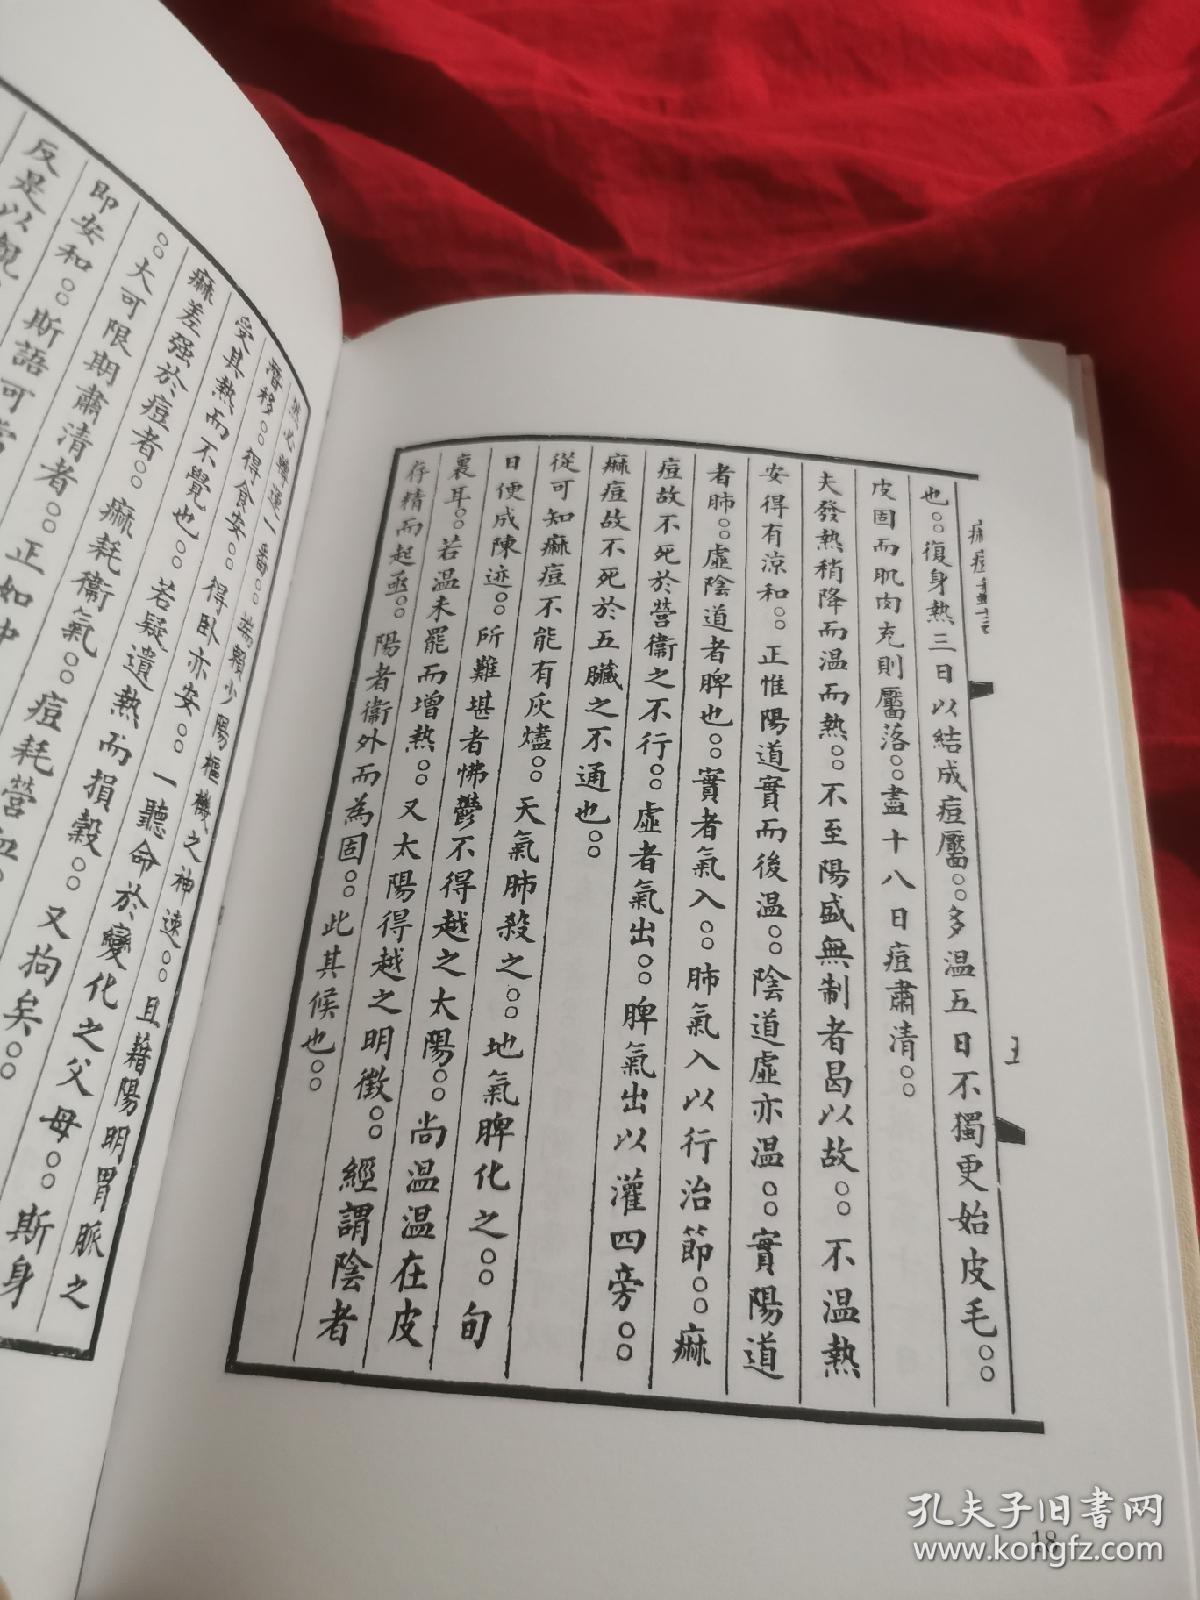 也。。復身熱三日以結成痘靨。。多溫五日不獨更始皮毛。。
皮固而肌肉充則靨落。。盡十八日痘肅清。。
夫發熱稍降而溫而熱。。不至陽盛無制者曷以故。。不溫熱
安得有涼和。。正惟陽道實而後溫。。陰道虛亦溫。。實陽道
者肺。。虛陰道者脾也。。實者氣入。。肺氣入以行治節。。麻
痘故不死於營衞之不行。。虛者氣出。。脾氣出以灌四旁。。
麻痘故不死於五臟之不通也。。
從可知麻痘不能有灰燼。。天氣肺殺之。。地氣脾化之。。旬
日便成陳迹。。所難堪者怫鬱不得越之太陽。。尚溫溫在皮
裏耳。。若溫未罷而增熱。。又太陽得越之明徵。。經謂陰者
存精而起亟。。陽者衞外而為固。。此其候也。。
潛移。。得食安。。得卧亦安。。一聽命於變化之父母。。斯身
受其熱而不覺也。。若疑遺熱而損穀。。又拘矣。。
麻差强於痘者。。麻耗衞氣。。痘耗營血。。
。。大可限期肅清者。。正如中
即安和。。斯語可
反是以觀
18
孔夫子旧书网
www.kongfz.com